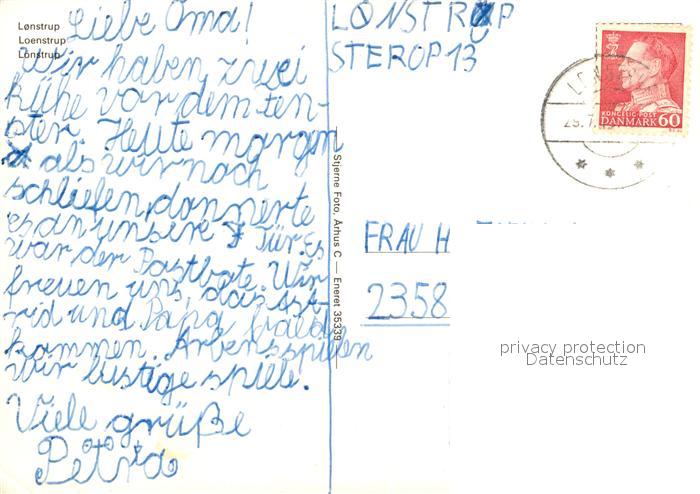 Lønstrup
Loenstrup
Lönstrup
Liebe Oma!
Wir haben zwei
kühe vor dem fen-
ster. Heute morgen
als wir noch
schliefen, donnerte
es an unsere Tür. Es
war der Postbote. Wir
freuen uns, das Ast-
rid und Papa bald
kommen. Abens spielen
wir lustige spiele.
Viele grüße
Petra
LØNSTRUP
STEROP 13
KONGELIG POST
DANMARK 60
Stjerne Foto, Århus C — Eneret 35339
FRAU H
2358
privacy protection
Datenschutz